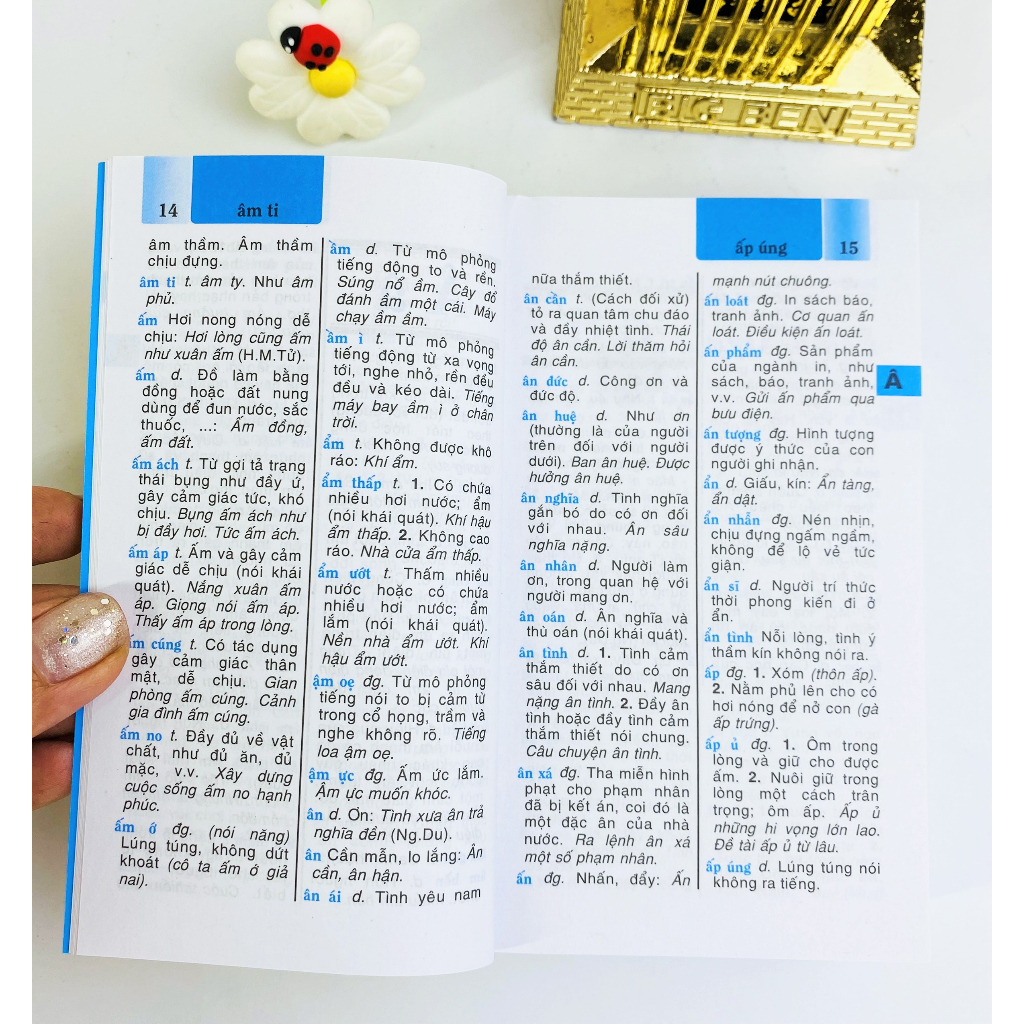 BIG BEN
14
âm ti
âm thầm. Âm thầm
chịu đựng.
âm ti t. âm ty. Như âm
phủ.
ấm Hơi nong nóng dễ
chịu: Hơi lòng cũng ấm
như xuân ấm (H.M.Tử).
ấm d. Đồ làm bằng
đồng hoặc đất nung
dùng để đun nước, sắc
thuốc, ...: Ấm đồng,
ấm đất.
ấm ách t. Từ gợi tả trạng
thái bụng như đầy ứ,
gây cảm giác tức, khó
chịu. Bụng ấm ách như
bị đầy hơi. Tức ấm ách.
ấm áp t. Ấm và gây cảm
giác dễ chịu (nói khái
quát). Nắng xuân ấm
áp. Giọng nói ấm áp.
Thấy ấm áp trong lòng.
ấm cúng t. Có tác dụng
gây cảm giác thân
mật, dễ chịu. Gian
phòng ấm cúng. Cảnh
gia đình ấm cúng.
ấm no t. Đầy đủ về vật
chất, như đủ ăn, đủ
mặc, v.v. Xây dựng
cuộc sống ấm no hạnh
phúc.
ấm ớ đg. (nói năng)
Lúng túng, không dứt
khoát (cô ta ấm ớ giả
nai).
ầm d. Từ mô phỏng
tiếng động to và rền.
Súng nổ ầm. Cây đổ
đánh ầm một cái. Máy
chạy ầm ầm.
ầm ì t. Từ mô phỏng
tiếng động từ xa vọng
tới, nghe nhỏ, rền đều
đều và kéo dài. Tiếng
máy bay ầm ì ở chân
trời.
ẩm t. Không được khô
ráo: Khí ẩm.
ẩm thấp t. 1. Có chứa
nhiều hơi nước; ẩm
(nói khái quát). Khí hậu
ẩm thấp. 2. Không cao
ráo. Nhà cửa ẩm thấp.
ẩm ướt t. Thấm nhiều
nước hoặc có chứa
nhiều hơi nước; ẩm
lắm (nói khái quát).
Nền nhà ẩm ướt. Khi
hậu ẩm ướt.
ậm oẹ đg. Từ mô phỏng
tiếng nói to bị cảm từ
trong cổ họng, trầm và
nghe không rõ. Tiếng
loa ậm oẹ.
ậm ực đg. Ấm ức lắm.
Ậm ực muốn khóc.
ân d. Ơn: Tình xưa ân trả
nghĩa đền (Ng.Du).
ân Cần mẫn, lo lắng: Ân
cần, ân hận.
ân ái d. Tình yêu nam
ấp úng
15
nữa thắm thiết.
ân cần t. (Cách đối xử)
tỏ ra quan tâm chu đáo
và đầy nhiệt tình. Thái
độ ân cần. Lời thăm hỏi
ân cần.
ân đức d. Công ơn và
đức độ.
ân huệ d. Như ơn
(thường là của người
trên đối với người
dưới). Ban ân huệ. Được
hưởng ân huệ.
ân nghĩa d. Tình nghĩa
gắn bó do có ơn đối
với nhau. Ân sâu
nghĩa nặng.
ân nhân d. Người làm
ơn, trong quan hệ với
người mang ơn.
ân oán d. Ân nghĩa và
thù oán (nói khái quát).
ân tình d. 1. Tình cảm
thắm thiết do có ơn
sâu đối với nhau. Mang
nặng ân tình. 2. Đầy ân
tình hoặc đầy tình cảm
thắm thiết nói chung.
Câu chuyện ân tình.
ân xá đg. Tha miễn hình
phạt cho phạm nhân
đã bị kết án, coi đó là
một đặc ân của nhà
nước. Ra lệnh ân xá
một số phạm nhân.
ấn đg. Nhấn, đẩy: Ấn
mạnh nút chuông.
ấn loát đg. In sách báo,
tranh ảnh. Cơ quan ấn
loát. Điều kiện ấn loát.
ấn phẩm đg. Sản phẩm
của ngành in, như
sách, báo, tranh ảnh,
v.v. Gửi ấn phẩm qua
bưu điện.
ấn tượng đg. Hình tượng
được ý thức của con
người ghi nhận.
ẩn d. Giấu, kín: Ẩn tàng,
ẩn dật.
ẩn nhẫn đg. Nén nhịn,
chịu đựng ngấm ngầm,
không để lộ vẻ tức
giận.
ẩn sĩ d. Người trí thức
thời phong kiến đi ở
ẩn.
ẩn tình Nỗi lòng, tình ý
thầm kín không nói ra.
ấp đg. 1. Xóm (thôn ấp).
2. Nằm phủ lên cho có
hơi nóng để nở con (gà
ấp trứng).
ấp ủ đg. 1. Ôm trong
lòng và giữ cho được
ấm. 2. Nuôi giữ trong
lòng một cách trân
trọng; ôm ấp. Ấp ủ
những hi vọng lớn lao.
Đề tài ấp ủ từ lâu.
ấp úng d. Lúng túng nói
không ra tiếng.
Â